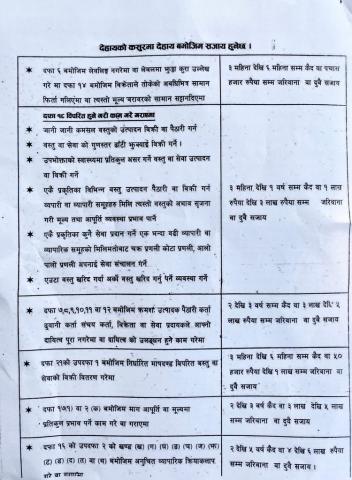 देहायको कसुरमा देहाय बमोजिम सजाय हुनेछ ।
दफा ६ बमोजिम लेबलिङ्ग नगरेमा वा लेबलमा झुठ्ठा कुरा उल्लेख
गरे मा दफा १४ बमोजिम बिक्रेताले तोकेको अबधिभित्र सामान
फिर्ता नलिएमा वा त्यस्तो मूल्य बराबरको सामान सट्टानदिएमा
३ महिना देखि ६ महिना सम्म कैद वा पचास
हजार रुपैया सम्म जरिवाना वा दुवै सजाय
दफा १८ विपरित हुने गरी काम गरे गराएमा
जानी जानी कमसल बस्तुको उत्पादन बिक्री वा पैठारी गर्न
बस्तु वा सेवा को गुणस्तर ढाँटी झुक्याई बिक्री गर्न ।
उपभोक्ताको स्वास्थ्यमा प्रतिकुल असर गर्ने बस्तु वा सेवा उत्पादन
वा बिक्री गर्ने
एकै प्रकृतिका बिभिन्न बस्तु उत्पादन पैठारी वा बिक्री गर्न
ब्यापारी वा ब्यापारी समुहहरु मिलि त्यस्तो बस्तुको अभाव सृजना
गरी मूल्य तथा आपुर्ति ब्यवस्था प्रभाव पार्ने
एकै प्रकृतिका कुनै सेवा प्रदान गर्ने एक भन्दा बढी ब्यापारी वा
ब्यापारिक समुहको मिलिमतोबाट चक्र प्रणली कोटा प्रणली, आलो
पालो प्रणली अपनाई सेवा संचालन गर्ने
एउटा बस्तु खरिद गर्दा अर्को बस्तु खरिद गर्नु पर्ने ब्यवस्था गर्ने
३ महिना देखि १ बर्ष सम्म कैद वा १ लाख
रुपैया देखि ३ लाख रुपैया सम्म जरिवाना
वा दुवै सजाय
दफा ७,८,९,१०,११ वा १२ बमोजिम क्रमशः उत्पादक पैठारी कर्ता
ढुवानी कर्ता संचय कर्ता, बिक्रेता वा सेवा प्रदायकले आफ्नो
दायित्व पूरा नगरेमा वा दायित्व को उलङ्घन हुने काम गरेमा
२ देखि ३ बर्ष सम्म कैद वा ३ लाख देखि ५
लाख रुपैया सम्म जरिवाना वा दुवै सजाय
दफा २१को उपदफा १ बमोजिम निर्धारित मापदण्ड बिपरित बस्तु वा
सेवाको बिक्री वितरण गरेमा
३ महिना देखि ६ महिना सम्म कैद वा ५०
हजार देखि १ लाख सम्म जरिवाना वा
दुवै सजाय
दफा १७(१) वा २ (क) बमोजिम माग आपुर्ति वा मूल्यमा
प्रतिकुल प्रभाव पर्ने काम गरे वा गराएमा
२ देखि ३ बर्ष कैद वा ३ लाख देखि ५ लाख
सम्म जरिवाना वा दुवै सजाय
दफा १६ को उपदफा २ को खण्ड (ख) (ग) (घ) (ङ) (च) (ज) (झ)
(ट) (ड) (द) (त) वा (थ) बमोजिम अनुचित ब्यापारिक क्रियाकलाप
गरे वा गराएमा
२ देखि ५ बर्ष कैद वा ४ देखि ६ लाख रुपैया
सम्म जरिवाना वा दुवै सजाय ।